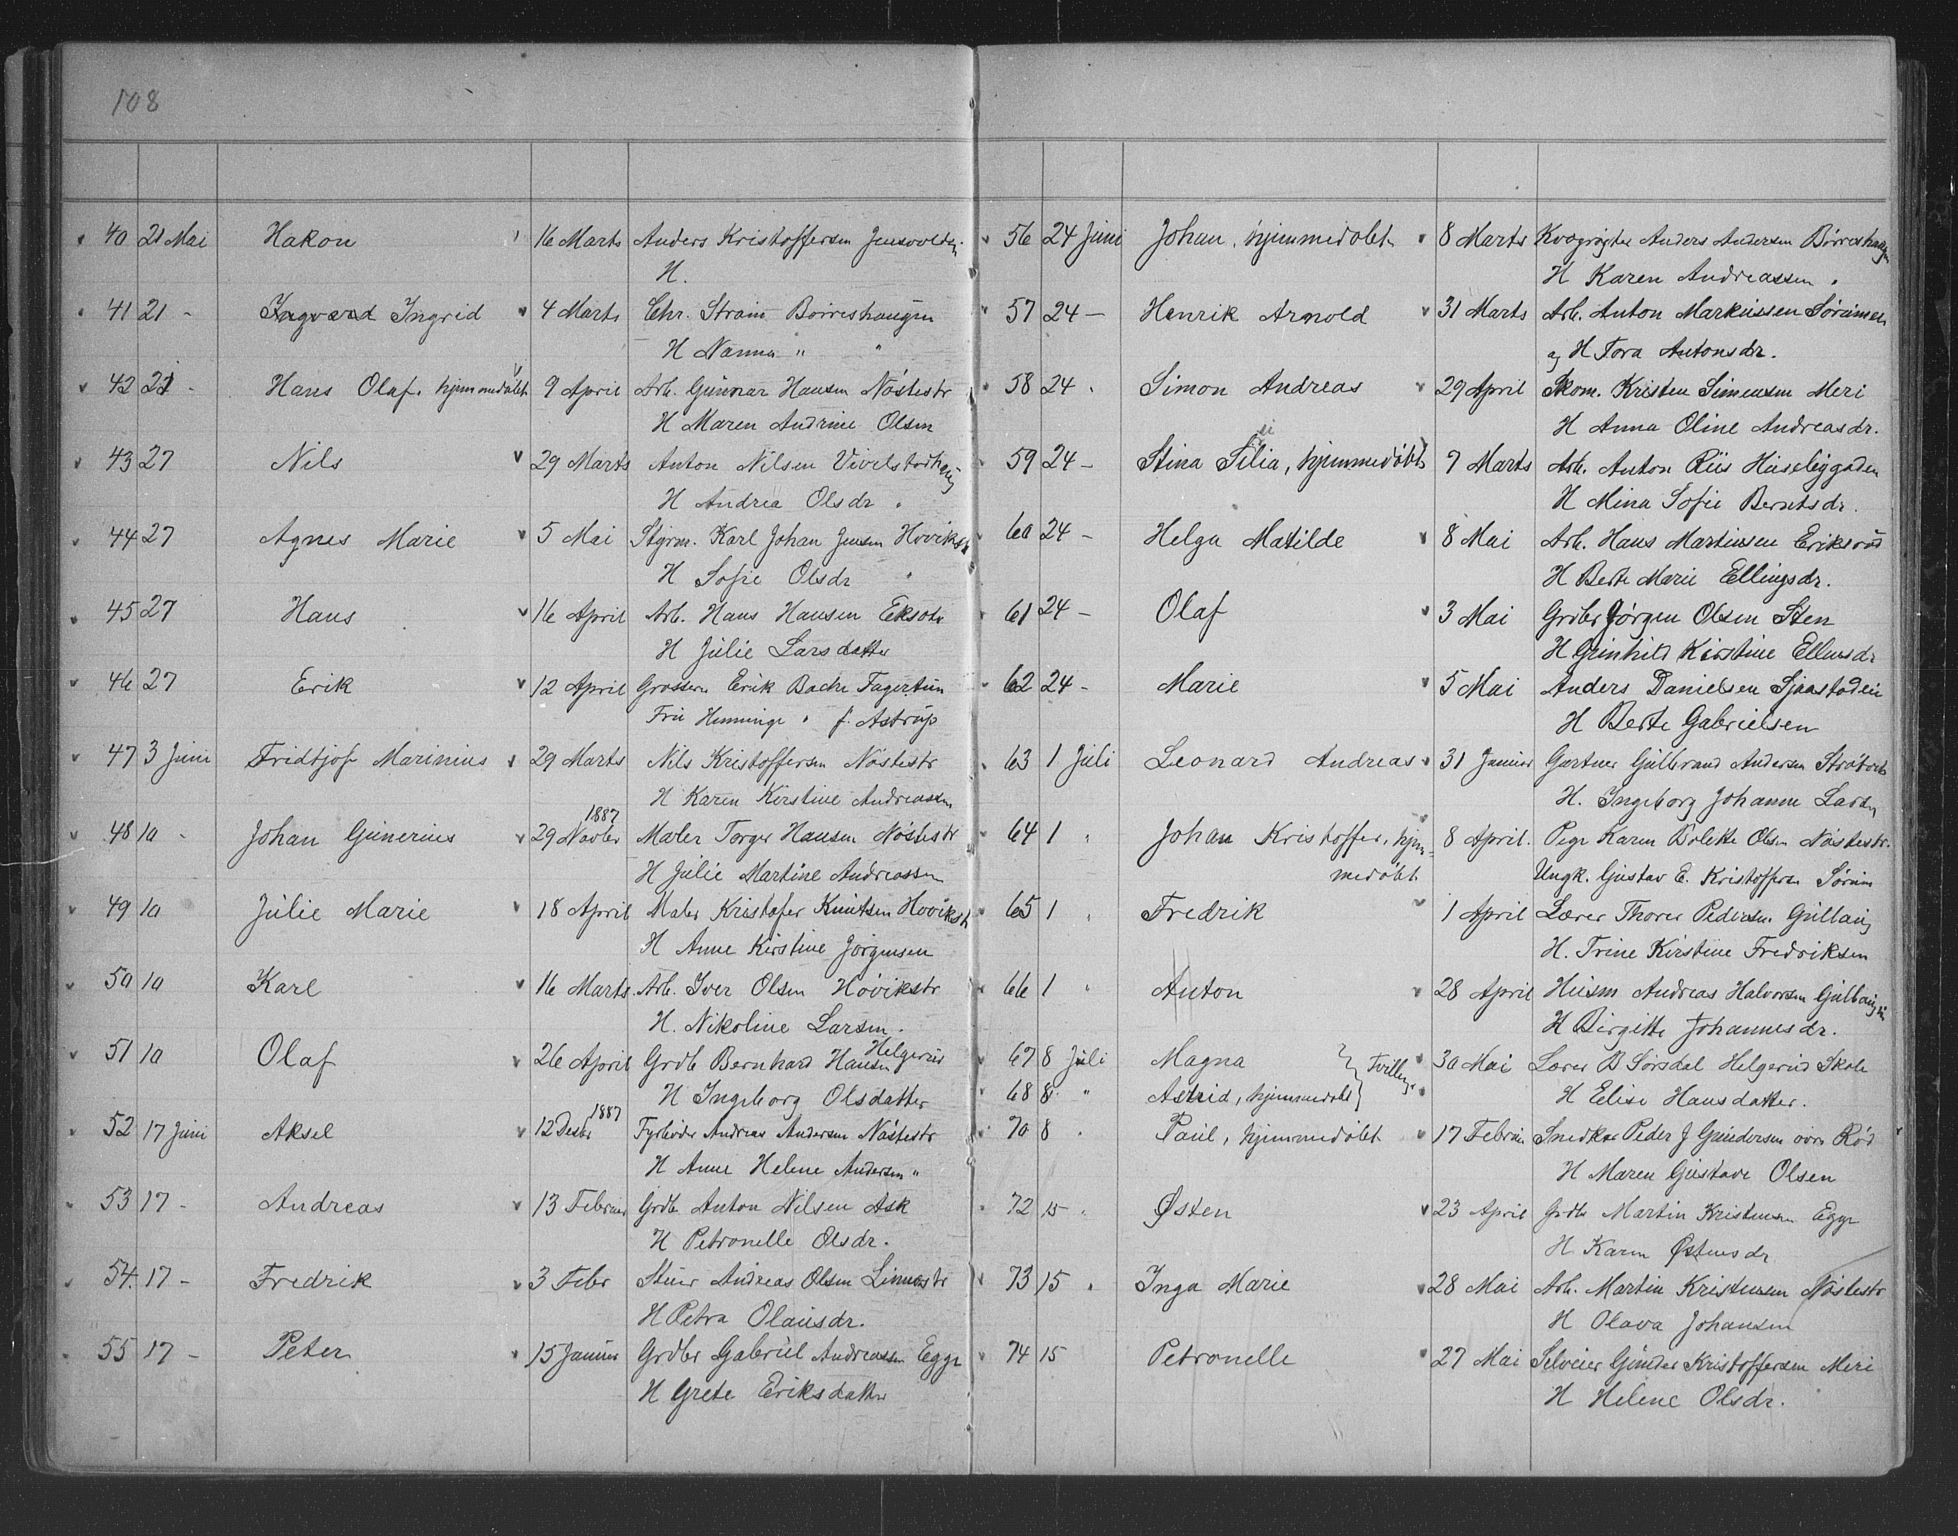 108
40 21 Mai Hakon 16 Marts Anders Kristoffersen Jensvolden
H.
41 21 - Ingvard Ingrid 4 Marts Chr. Strøm Børreshaugen
H Nanna " "
42 21 - Hans Olaf, hjemmedøbt 9 April Arb. Gunnar Hansen Nøstestr
H Maren Andrine Olsen
43 27 Nils 29 Marts Anton Nilsen Vivelstadhaug
H Andrea Olsdr "
44 27 Agnes Marie 5 Mai Styrm. Karl Johan Jensen Hoviks
H Sofie Olsdr "
45 27 Hans 16 April Arb. Hans Hansen
H Julie Larsdatter
46 27 Erik 12 April Grosserer Erik Bache Fagertun
Fru Henninge " f. Astrup
47 3 Juni Fridtjof Marinius 29 Marts Nils Kristoffersen Nøstestr
H Karen Kirstine Andreassen
48 10 - Johan Gunerius 29 Novber 1887 Maler Torger Hansen Nøstestr
H Julie Martine Andreassen
49 10 Julie Marie 18 April Maler Kristofer Knutsen Hoviksst
H Anne Kirstine Jørgensen
50 10 Karl 16 Marts. Arb. Iver Olsen Høvikstr
H. Nikoline Larsen.
51 10 Olaf 26 April Grdb Bernhard Hansen Helgerud
H Ingeborg Olsdatter
52 17 Juni Aksel 12 Desbr 1887 Fyrbøder Andreas Andersen Nøstestr
H Anne Helene Andersen "
53 17 - Andreas 13 Februar Grdb Anton Nilsen Ask
H Petronelle Olsdr.
54. 17 - Fredrik 3 Febr Stuer Andreas Olsen Linnestr
H Petra Olausdr.
55 17 - Peter 15 Januar Grdbr Gabriel Andreassen Egge
H Grete Eriksdatter
56 24 Juni Johan, hjemmedøbt 8 Marts Kvægrøgter Anders Andersen Børreshaugen
H Karen Andreassen "
57 24 - Henrik Arnold 31 Marts Arb. Anton Markussen Sørumsen
og H Tora Antonsdr.
58 24 " Simon Andreas 29 April Skom. Kristen Simensen Meri
H Anna Oline Andreasdr.
59 24 - Stina Silia, hjemmedøbt 7 Marts Arb. Anton Riis Huseby
H Mina Sofie Berntsdr.
60 24 - Helga Matilde 8 Mai Arb. Hans Martinsen Eriksrud
H Berte Marie Ellingsdr.
61 24 - Olaf 3 Mai Grdbr Jørgen Olsen Sten
H Gunhild Kirstine Ellensdr
62 24 - Marie 5 Mai Anders Danielsen Sjaastadei
H Berte Gabrielsen
63 1 Juli Leonard Andreas 31 Januar Gartner Gulbrand Andersen
H. Ingeborg Johanne Larsen
64 1 " Johan Kristoffer, hjem-
medøbt 8 April. Pige Karen Bolette Olsen Nøstestr.
Ungk. Gustav E. Kristoffersen Sørum
65 1 " Fredrik 1 April Lærer Thorer Pedersen Gullaug
H. Trine Kirstine Fredriksen
66 1 " Anton 28 April Husm Andreas Halvorsen Gullaugeie
H Birgitte Johannesdr.
67 8 Juli Magna } Tvillinger 30 Mai Lærer B Sørsdal Helgerud Skole
68 8 " Astrid, hjemmedøbt } H Elise Hansdatter.
70 8 " Paul, hjemmedøbt 17 Februar Snedker Peder J Gundersen øvre Rød
H Maren Gustava Olsen
72 15 " Østen 23 April Grdbr Martin Kristensen Egge
H Karen Østensdr
73 15 " Inga Marie 28 Mai Arb. Martin Kristensen Nøstestr
H Olava Johansen
74 15 Petronelle 27 Mai Selveier Gunder Kristoffersen Meri
H Helene Olsdr.